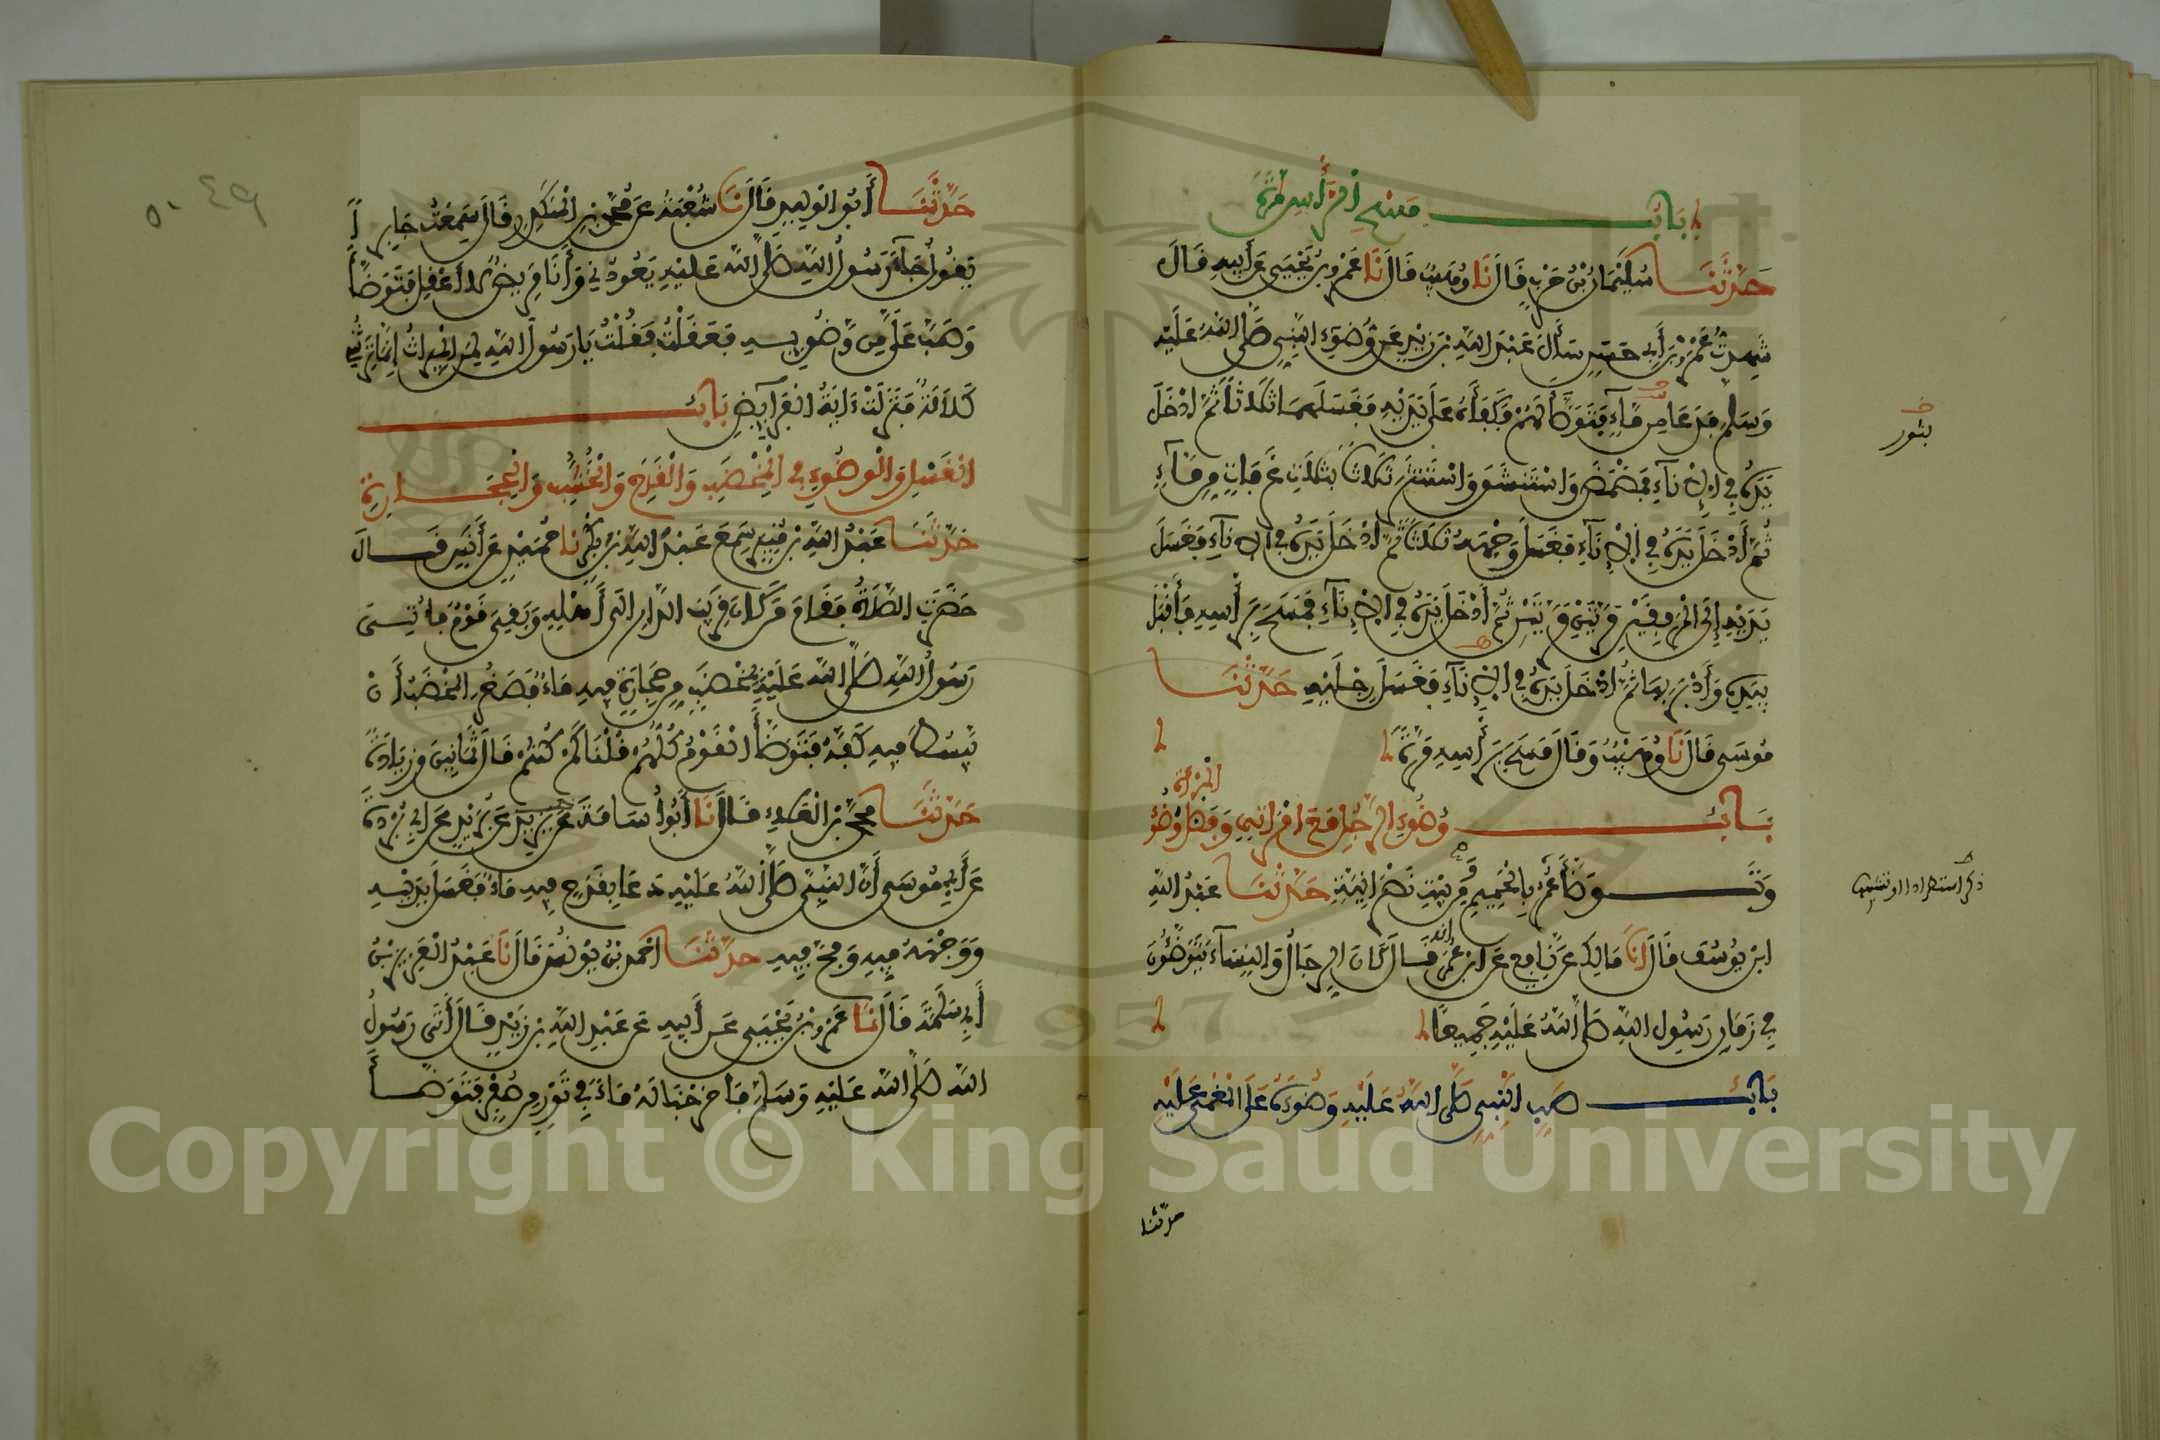 باب مسح الرأس مرة
حدثنا سليمان بن حرب قال نا وهيب قال نا عمرو بن يحيى عن أبيه قال
شهدت عمرو بن أبي حسن سأل عبد الله بن زيد عن وضوء النبي صلى الله عليه
وسلم فدعا من ماء فتوضأ لهم فكفأه على يديه فغسلهما ثلاثا ثم ادخل
يده في الإناء فمضمض واستنشق واستنثر ثلاثا بثلاث غرفات من ماء
ثم أدخل يده في الإناء فغسل وجهه ثلاثا ثم ادخل يده في الإناء فغسل
يديه إلى المرفقين مرتين مرتين ثم أدخل يده في الإناء فمسح برأسه فأقبل
بيده وأدبر بها ثم ادخل يده في الإناء فغسل رجليه حدثنا
موسى قال نا وهيب وقال مسح برأسه مرة
باب وضوء الرجل مع امرأته وفضل وضوء
المرأة
وتوضأ عمر بالحميم ومن بيت نصرانية حدثنا عبد الله
ابن يوسف قال انا مالك عن نافع عن ابن عمر أنه قال كان الرجال والنساء يتوضئون
في زمان رسول الله صلى الله عليه جميعا
باب صب النبي صلى الله عليه وضوءه على المغمى عليه
حدثنا
بتور
ذكر استطرادا
حدثنا أبو الوليد قال نا شعبة عن محمد بن المنكدر قال سمعت جابرا
يقول جاء رسول الله صلى الله عليه يعودني وأنا مريض لا أعقل فتوضأ
وصب علي من وضوئه فعقلت فقلت يا رسول الله لمن الميراث إنما يرثني
كلالة فنزلت ءاية الفرايض باب
الغسل والوضوء في المخضب والقدح والخشب والحجارة
حدثنا عبد الله بن منير سمع عبد الله بن بكر نا حميد عن أنس قال
حضرت الصلاة فقام من كان قريب الدار الى أهله وبقي قوم فأتي
رسول الله صلى الله عليه بمخضب من حجارة فيه ماء فصغر المخضب أن
يبسط فيه كفه فتوضأ القوم كلهم قلنا كم كنتم قال ثمانين وزيادة
حدثنا محمد بن العلاء قال نا أبو أسامة عن بريد عن أبي بردة
عن أبي موسى أن النبي صلى الله عليه دعا بقدح فيه ماء فغسل يديه
ووجهه فيه ومج فيه حدثنا احمد بن يونس قال نا عبد العزيز بن
أبي سلمة قال نا عمرو بن يحيى عن أبيه عن عبد الله بن زيد قال أتى رسول
الله صلى الله عليه وسلم فأخرجنا له ماء في تور من صفر فتوضأ
٤٩
٥٠
1957
Copyright © King Saud University